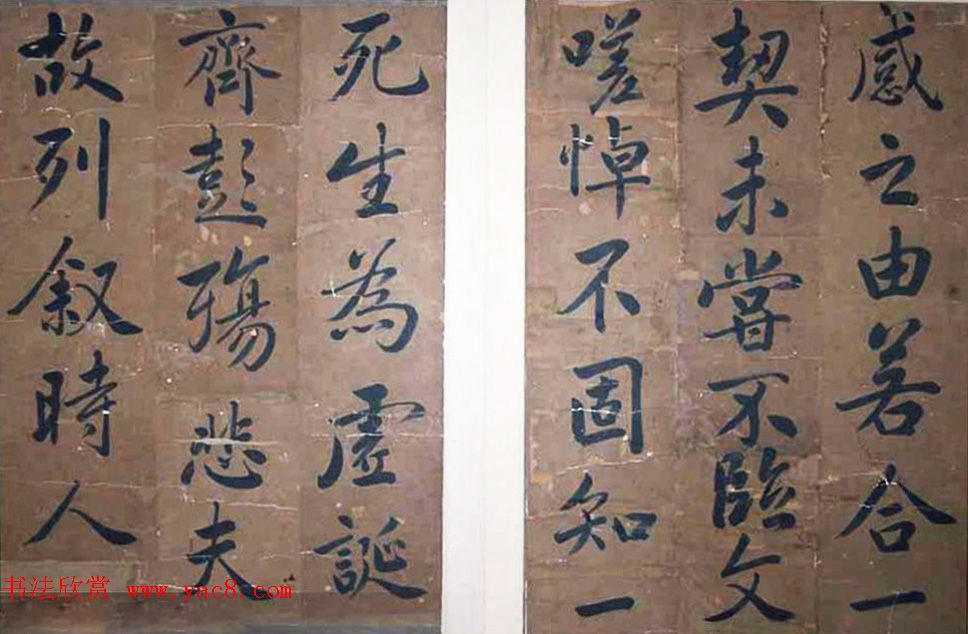 感之由若合一
契未嘗不臨文
嗟悼不固知一
死生為虛誕
齊彭殤悲夫
故列叙時人
书法欣赏 www.yac8.com